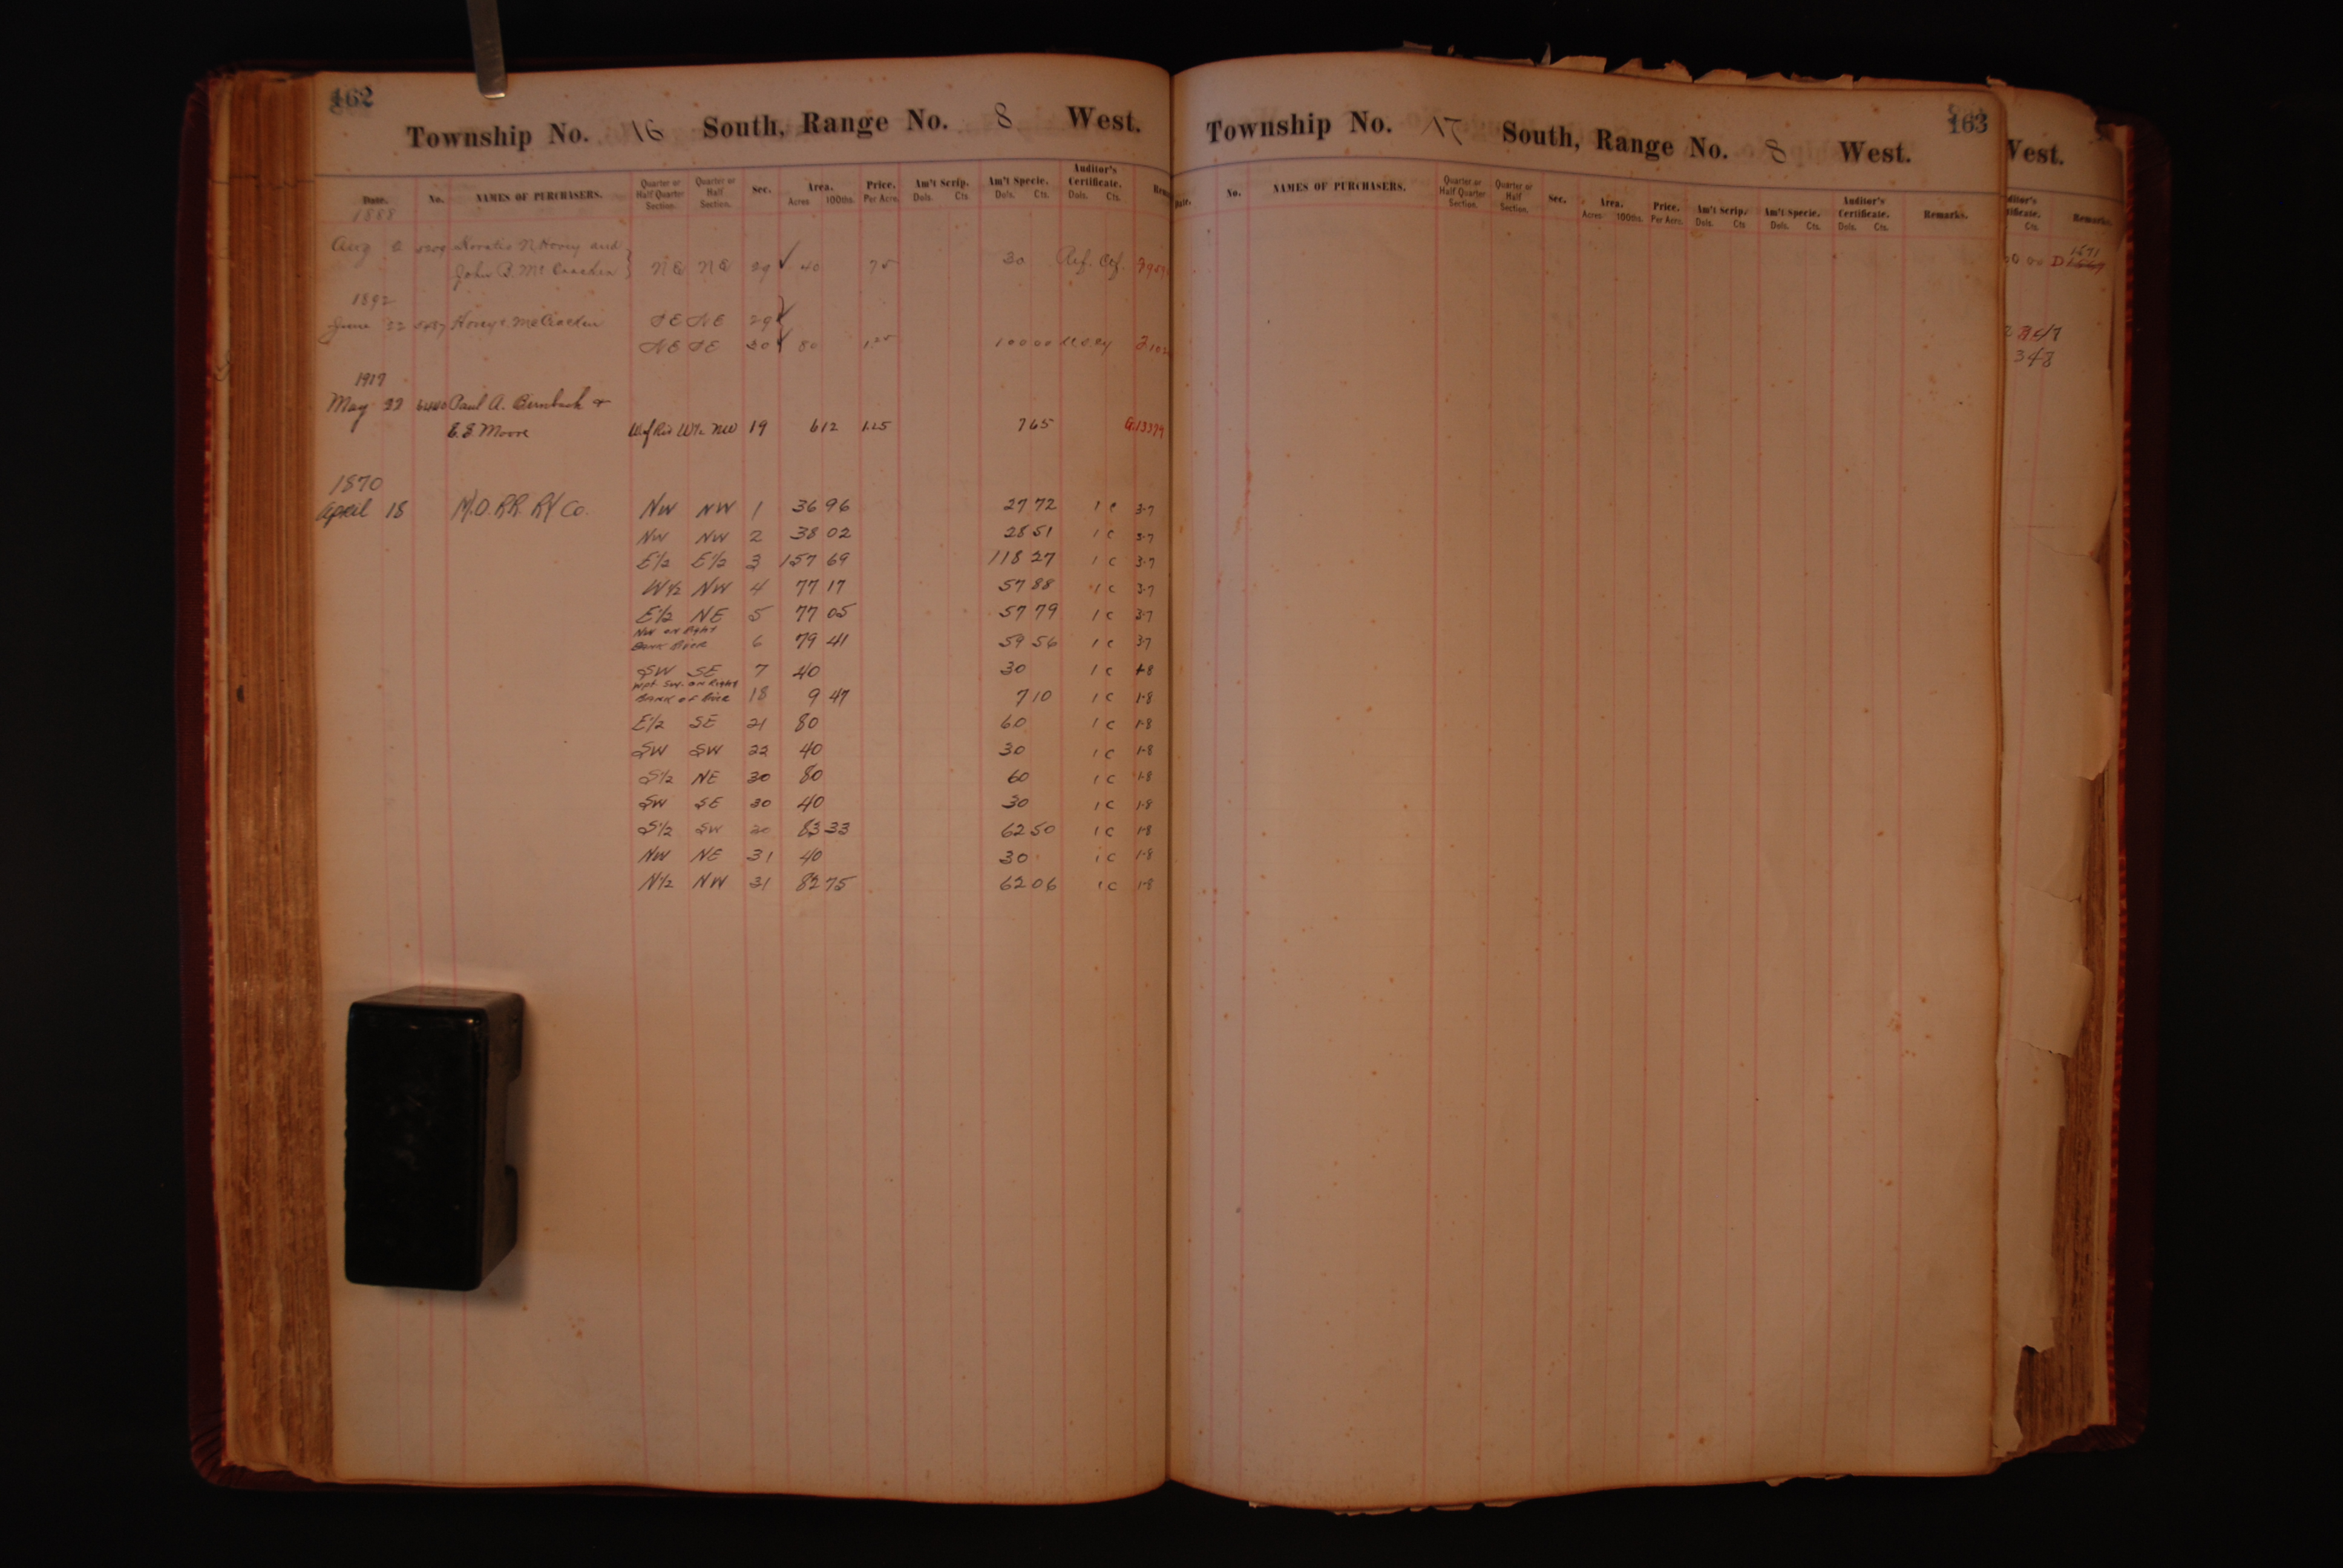 162
Township No. 16 South, Range No. 8 West.
Date. No. NAMES OF PURCHASERS. Quarter or Half Quarter Section. Quarter or Half Section. Sec. Area. Acres 100ths. Price. Per Acre. Am't Scrip. Dols. Cts. Am't Specie. Dols. Cts. Auditor's Certificate. Dols. Cts.
1888
Aug 2 Horatio N Hovey and
John B. McCracken } NE NE 29 ✓ 40 75 30 Ref. Cef.
1892
June 22 Hovey & McCracken SE NE 29 ✓
NE SE 30 ✓ 80 1.25 100 00
1917
May 22 Paul A. Bernbach &
E. E Moore W of Riv W½ NW 19 6 12 1.25 7 65
1870
April 18 M.O.RR. RY Co. NW NW 1 36 96 27 72 1 C 3-7
NW NW 2 38 02 28 51 1 C 3-7
E½ E½ 3 157 69 118 27 1 C 3-7
W½ NW 4 77 17 57 88 1 C 3-7
E½ NE 5 77 05 57 79 1 C 3-7
NW on Right
Bank River 6 79 41 59 56 1 C 3-7
SW SE 7 40 30 1 C 1-8
Wpt SW. on Right
Bank of River 18 9 47 7 10 1 C 1-8
E½ SE 21 80 60 1 C 1-8
SW SW 22 40 30 1 C 1-8
S½ NE 30 80 60 1 C 1-8
SW SE 30 40 30 1 C 1-8
S½ SW 30 83 33 62 50 1 C 1-8
NW NE 31 40 30 1 C 1-8
N½ NW 31 82 75 62 06 1 C 1-8
163
Township No. 17 South, Range No. 8 West.
Date. No. NAMES OF PURCHASERS. Quarter or Half Quarter Section. Quarter or Half Section. Sec. Area. Acres 100ths. Price. Per Acre. Am't Scrip. Dols. Cts Am't Specie. Dols. Cts. Auditor's Certificate. Dols. Cts. Remarks.
West.
Cts. Remarks.
348